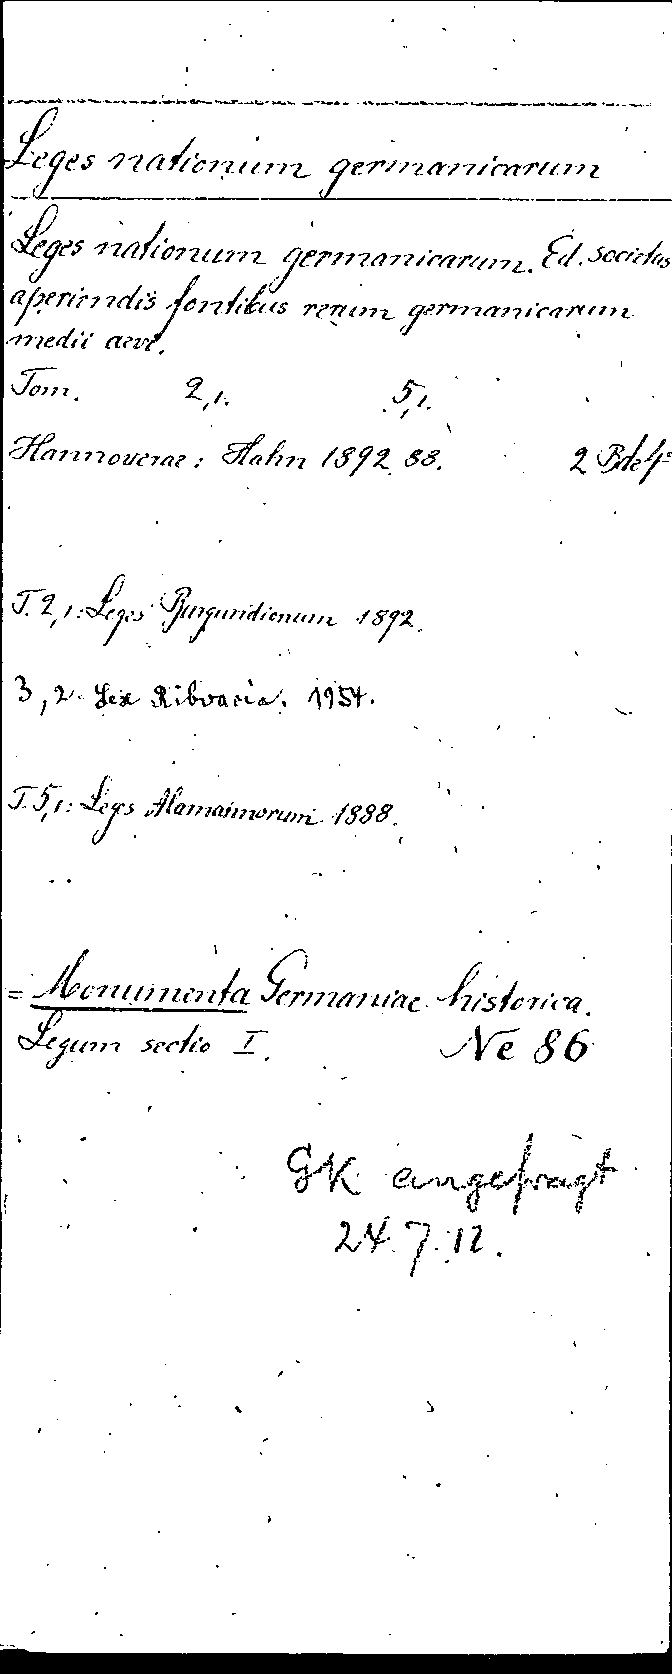 Leges nationum germanicarum
Leges nationum germanicarum. Ed. societas
aperiendis fontibus rerum germanicarum
medii aevi.
Tom. 2,1. 5,1.
Hannoverae: Hahn 1892. 88. 2 Bde 4°
T. 2,1: Leges Burgundionum 1892.
3,2. Lex Ribvaria. 1954.
T. 5,1: Leges Alamannorum 1888.
= Monumenta Germaniae historica.
Legum sectio I. Ne 86
GK angefragt
24.7.12.